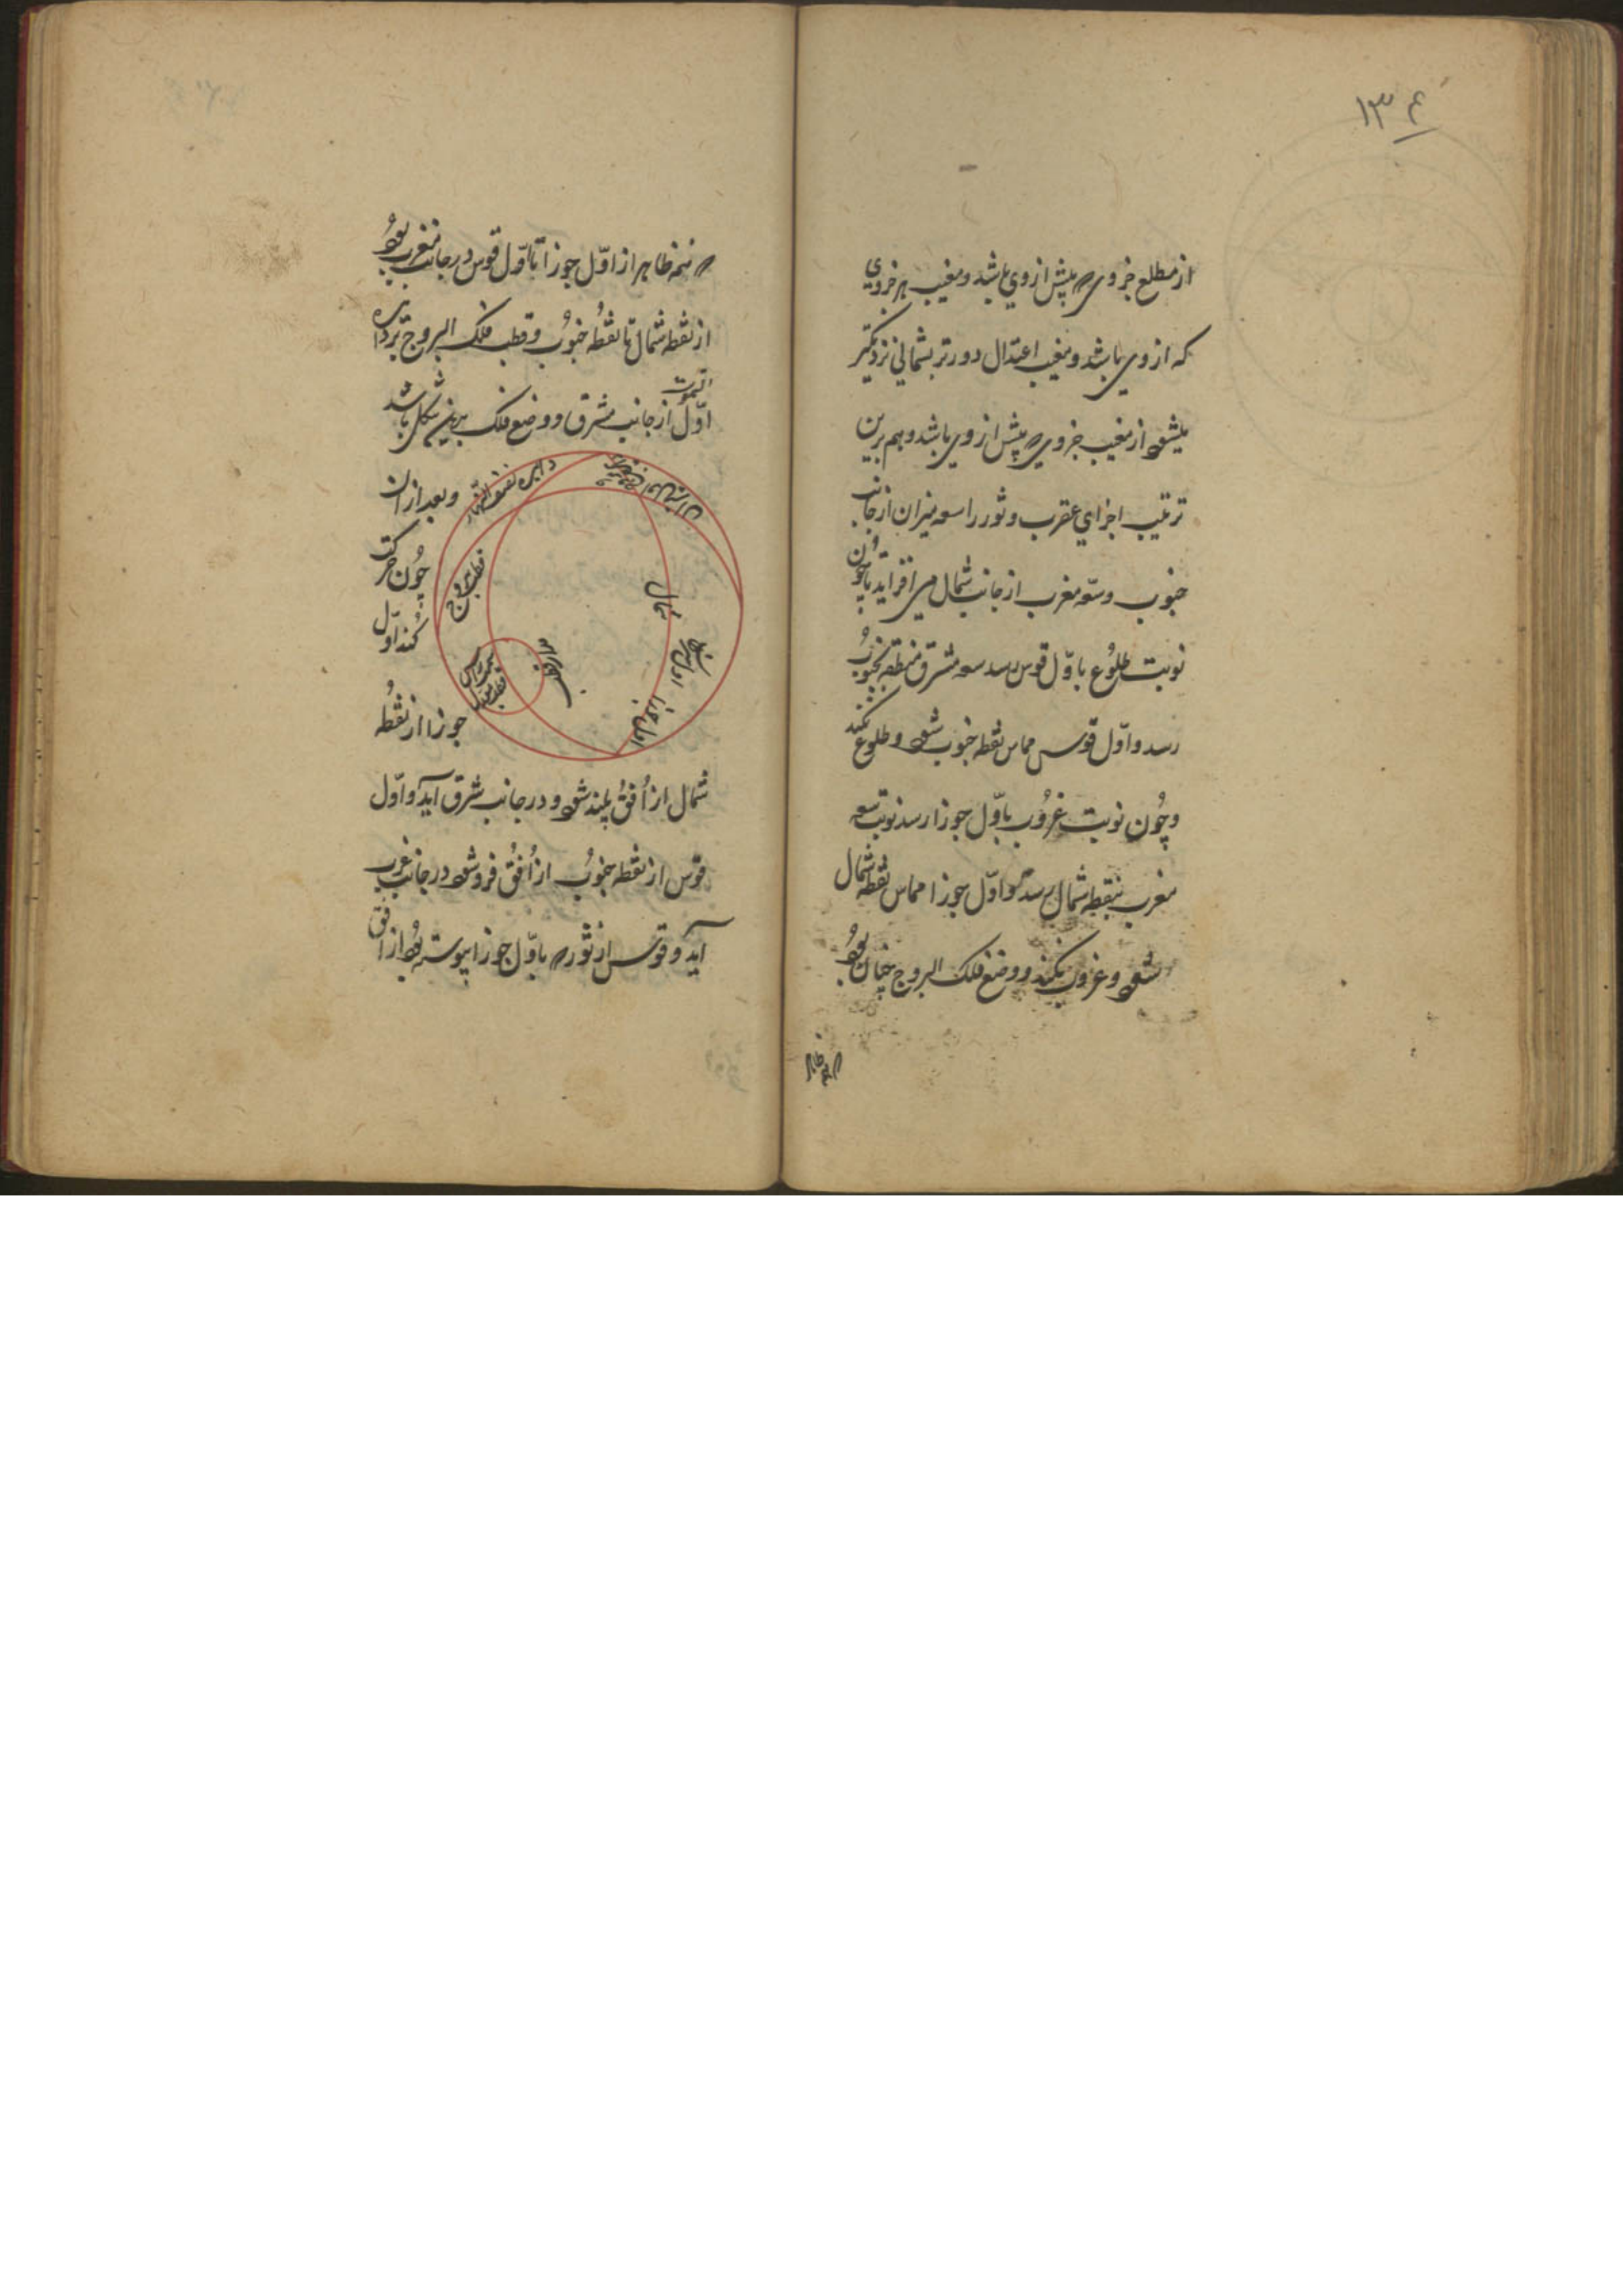 ۱۳۴
از مطلع جزوی که پیش از وی باشد و مغیب هر جزوی
که از وی باشد و مغیب اعتدال دورتر بشمالی نزدیکتر
میشود از مغیب جزوی که پیش از وی باشد و هم برین
ترتیب اجزای عقرب و ثور را سعه میزان از جانب
جنوب و سعه مغرب از جانب شمال می افزاید تا چون
نوبت طلوع باول قوس رسد سعه مشرق منطقه بجنوب
رسد و اول قوس مماس نقطه جنوب شود و طلوع نکند
و چون نوبت غروب باول جوزا رسد نوبت سعه
مغرب بنقطه شمال رسد و اول جوزا مماس نقطه شمال
شود و غروب نکند و وضع فلک البروج چنان بود
که نیمه ظاهر
که نیمه ظاهر از اول جوزا تا اول قوس در جانب مغرب بود
از نقطه شمال تا نقطه جنوب و قطب فلک البروج بر دایره
اول السموت از جانب مشرق و وضع فلک برین شکل باشد
دایره نصف النهار
و بعد از آن
قطب بروج
چون حرکت
شمال
کند اول
مدار قطب
سمت راس
اول جوزا
جوزا از نقطه
شمال از افق بلند شود و در جانب شرق آید و اول
قوس از نقطه جنوب از افق فرو شود در جانب غرب
آید و قوس از ثور که باول جوزا پیوسته بود از افق